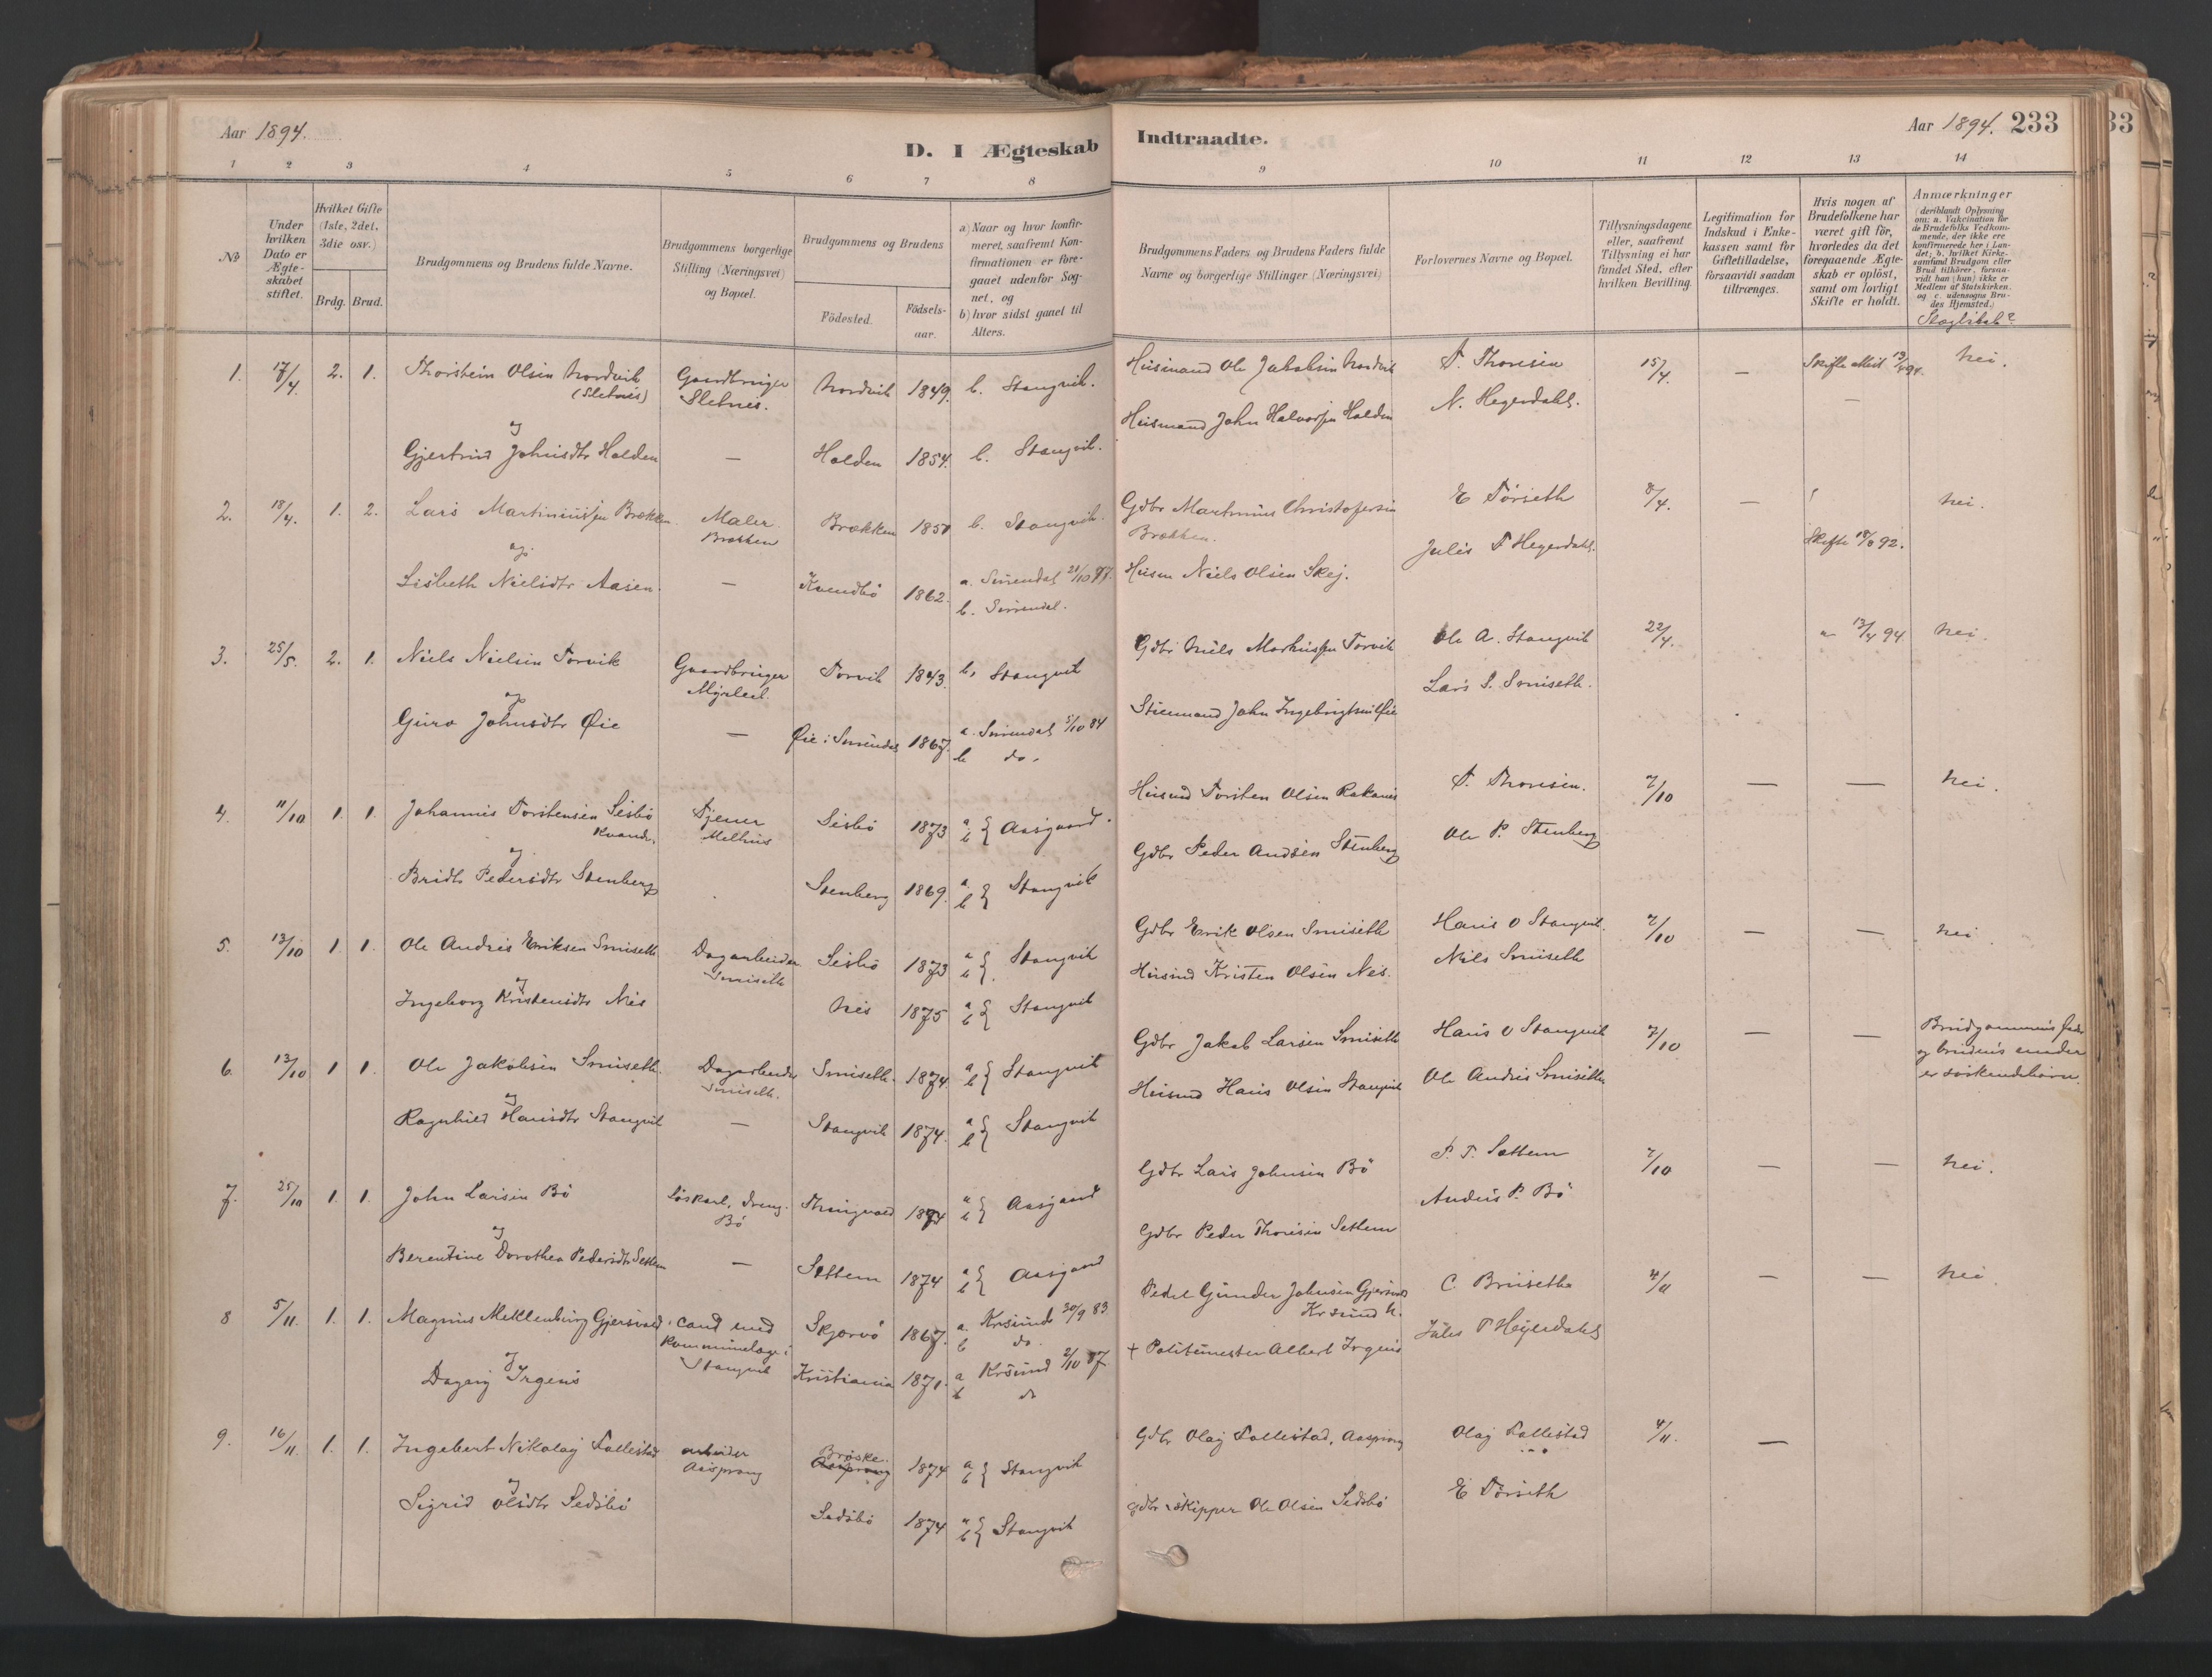 Aar 1894.
D. I Ægteskab
Indtraadte.
Aar 1894. 233
33
1 2 3 4 5 6 7 8
9 10 11 12 13 14
No
Under hvilken Dato er Ægteskabet stiftet.
Hvilket Gifte (1ste, 2det, 3die osv.)
Brdg. Brud.
Brudgommens og Brudens fulde Navne.
Brudgommens borgerlige Stilling (Næringsvei) og Bopæl.
Brudgommens og Brudens
Födested.
Födsels-aar.
a) Naar og hvor konfir-
meret, saafremt Kon-
firmationen er fore-
gaaet udenfor Sog-
net, og
b) hvor sidst gaaet til
Alters.
Brudgommens Faders og Brudens Faders fulde
Navne og borgerlige Stillinger (Næringsvei)
Forlovernes Navne og Bopæl.
Tillysningsdagene
eller, saafremt
Tillysning ei har
fundet Sted, efter
hvilken Bevilling.
Legitimation for
Indskud i Enke-
kassen samt for
Giftetilladelse,
forsaavidt saadan
tiltrænges.
Hvis nogen af
Brudefolkene har
været gift för,
hvorledes da det
foregaaende Ægte-
skab er oplöst,
samt om lovligt
Skifte er holdt.
Anmærkninger
(deriblandt Oplysning
om: a. Vakcination for
de Brudefolks Vedkom-
mende, der ikke ere
konfirmerede her i Lan-
det; b. hvilket Kirke-
samfund Brudgom eller
Brud tilhörer, forsaa-
vidt han (hun) ikke er
Medlem af Statskirken.
og c. udensogns Bru-
des Hjemsted.)
Slægtskab?
1. 17/4 2. 1. Thorstein Olsen Nordvik Gaardbruger Nordvik 1849. b. Stangvik.
(Sletnes) Sletnes.
og
Gjertrud Johnsdtr Holden — Holden 1854. b. Stangvik.
Husmand Ole Jakobsen Nordvik T. Thoresen 15/4 — Skifte 13/4 94. Nei.
Husmand John Halvorsen Holden N. Hegerdahl. —
2. 18/4. 1. 2. Lars Martinussen Brækken Maler Brækken 1851 b. Stangvik.
Brækken
og
Lisbeth Nielsdtr Aasen. — Kvendbö 1862. a. Surendal 21/10 77.
b. Surendal.
Gdbr Martinus Christofersen E Törseth 8/4. — nei.
Brækken.
Jules T Hegerdahl. Skifte 92.
Husm Niels Olsen Skej.
3. 25/5. 2. 1. Niels Nielsen Torvik Gaardbruger Torvik 1843. b. Stangvik
og
Guro Johnsdtr Øie — Øie i Surendal 1867. a. Surendal 5/10 84
b do.
Gdbr Niels Torvik Ole A. Stangvik 22/4. 13/4 94 Nei.
Lars S. Smiseth.
John Ingebrigtsen Øie
4. 11/10 1. 1. Johannes Torstensen Sesbö Tjener Sesbö 1873 a b } Aasgaard.
Kvande. Melhus
og
Bridt Pedersdtr Stenberg Stenberg 1869. a b } Stangvik
Husmd Torsten Olsen Rakanes T. Thoresen. 7/10 — — Nei.
Gdbr Peder Andsen Stenberg Ole P. Stenberg
5. 13/10 1. 1. Ole Andreas Eriksen Smiseth Dagarbeider Sesbö 1873 a b } Stangvik
Smiseth
og
Ingeborg Kristensdtr Nes Nes 1875 a b } Stangvik
Gdbr Erik Olsen Smiseth Hans O Stangvik. 7/10 — — nei
Husmd Kristen Olsen Nes. Nils Smiseth
6. 13/10 1 1. Ole Jakobsen Smiseth. Dagarbeider Smiseth. 1874. a b } Stangvik
Smiseth.
og
Ragnhild Hansdtr Stangvik — Stangvik 1874. a b } Stangvik
Gdbr Jakob Larsen Smiseth Hans O Stangvik 7/10 — — Brudgommens fader
og brudens moder
er söskendebörn.
Husmd Hans Olsen Stangvik Ole Andreas Smiseth
7. 25/10 1. 1. John Larsen Bö Löskarl, dreng. Thingvold 1874 a b } Aasgaard
Bö
og
Berentine Dorothea Pedersdtr Settem — Settem 1874 a b } Aasgaard
Gdbr Lars Johnsen Bö P. T. Settem 7/10 — — Nei.
Anders P. Bö
Gdbr Peder Thoresen Settem
8 5/11. 1. 1. Magnus Meklenburg Gjersvold, cand med Skjervö 1867. a. Krsund 30/9 83
kommunelæge i b do.
Stangvik
og
Dagny Irgens Kristiania 1871. a Krsund 2/10 87
b do
Gunder Johnsen Gjersvold C. Bruseth 4/11 — — Nei.
Krsund N.
+ Politimester Albert Irgens Jules T Heyerdahl
9. 16/11. 1. 1. Ingebert Nikolaj Tallestad arbeider Bröske. 1874 a b } Stangvik
Aasprong Aasprong
og
Sigrid Olsdtr Sedsbö Sedsbö 1874 a b } Stangvik
Gdbr Olaj Tallestad, Aasprong Olaj Tallestad 4/11. —
Gdbr & skipper Ole Olsen Sedsbö E Törseth